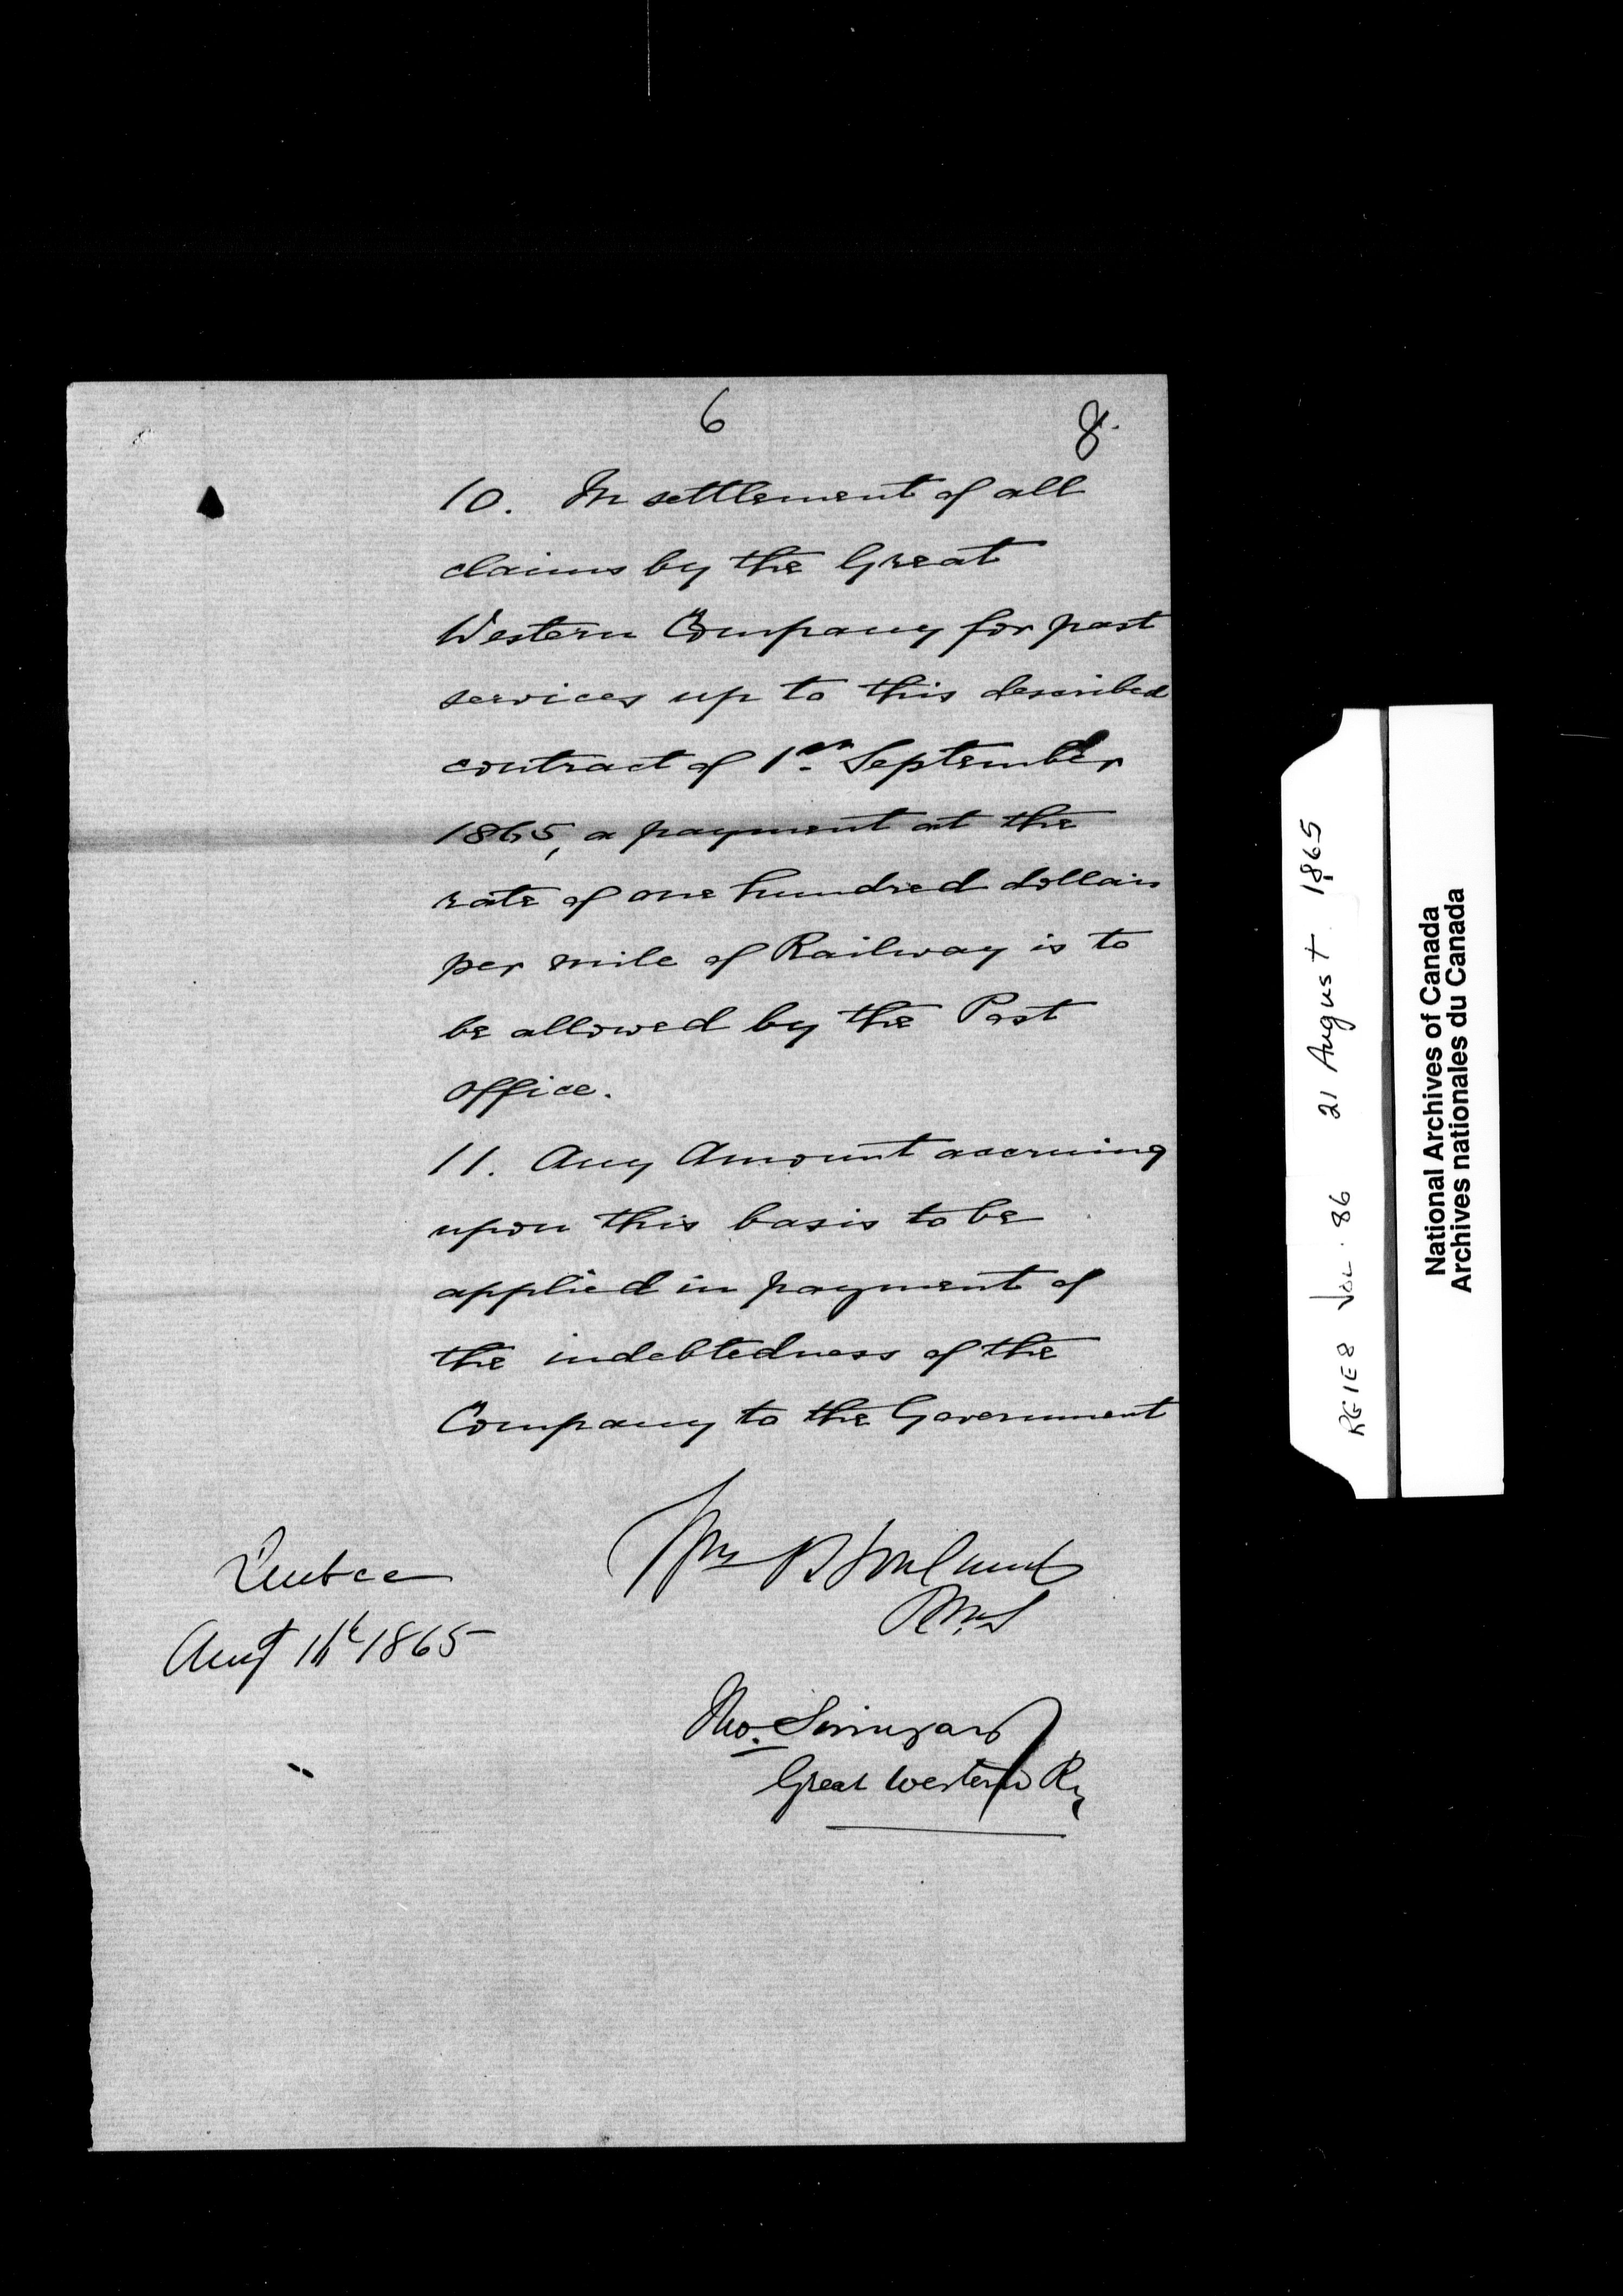 6
8.
10. In settlement of all
claims by the Great
Western Company for past
services up to this described
contract of 1st September
1865, a payment at the
rate of one hundred dollars
per mile of Railway is to
be allowed by the Post
office.
11. Any Amount accruing
upon this basis to be
applied in payment of
the indebtedness of the
Company to the Government
Wm P Howland
PMG
Quebec
Augt 1865
Thos. Swinyard
Great Western Ry
RG1E8 VOL. 86 21 August 1865
National Archives of Canada
Archives nationales du Canada